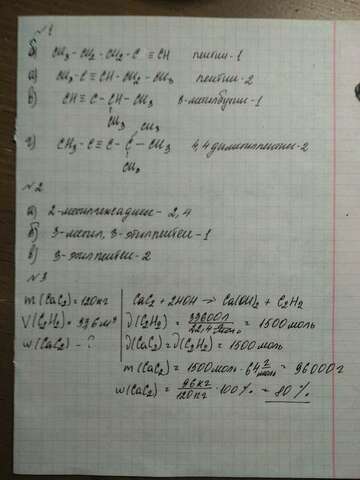 №1
б) CH₃-CH₂-CH₂-C≡CH пентин-1
а) CH₃-C≡CH-CH₂-CH₃ пентин-2
в) CH≡C-CH-CH₃ 3-метилбутин-1
CH₃ CH₃
г) CH₃-C≡C-C-CH₃ 4,4 диметилпентин-2
CH₃
№2
а) 2-метилгексадиен-2,4
б) 3-метил, 3-этилпентен-1
в) 3-этилпентен-2
№3
m(CaC₂)=120кг CaC₂ + 2HOH → Ca(OH)₂ + C₂H₂
V(C₂H₂)=33,6м³ ∂(C₂H₂) = 33600л / 22,4 л/моль = 1500моль
w(CaC₂) - ? ∂(CaC₂)=∂(C₂H₂)=1500моль
m(CaC₂) = 1500моль · 64 г/моль = 96000г
w(CaC₂) = 96кг / 120кг · 100% = 80%